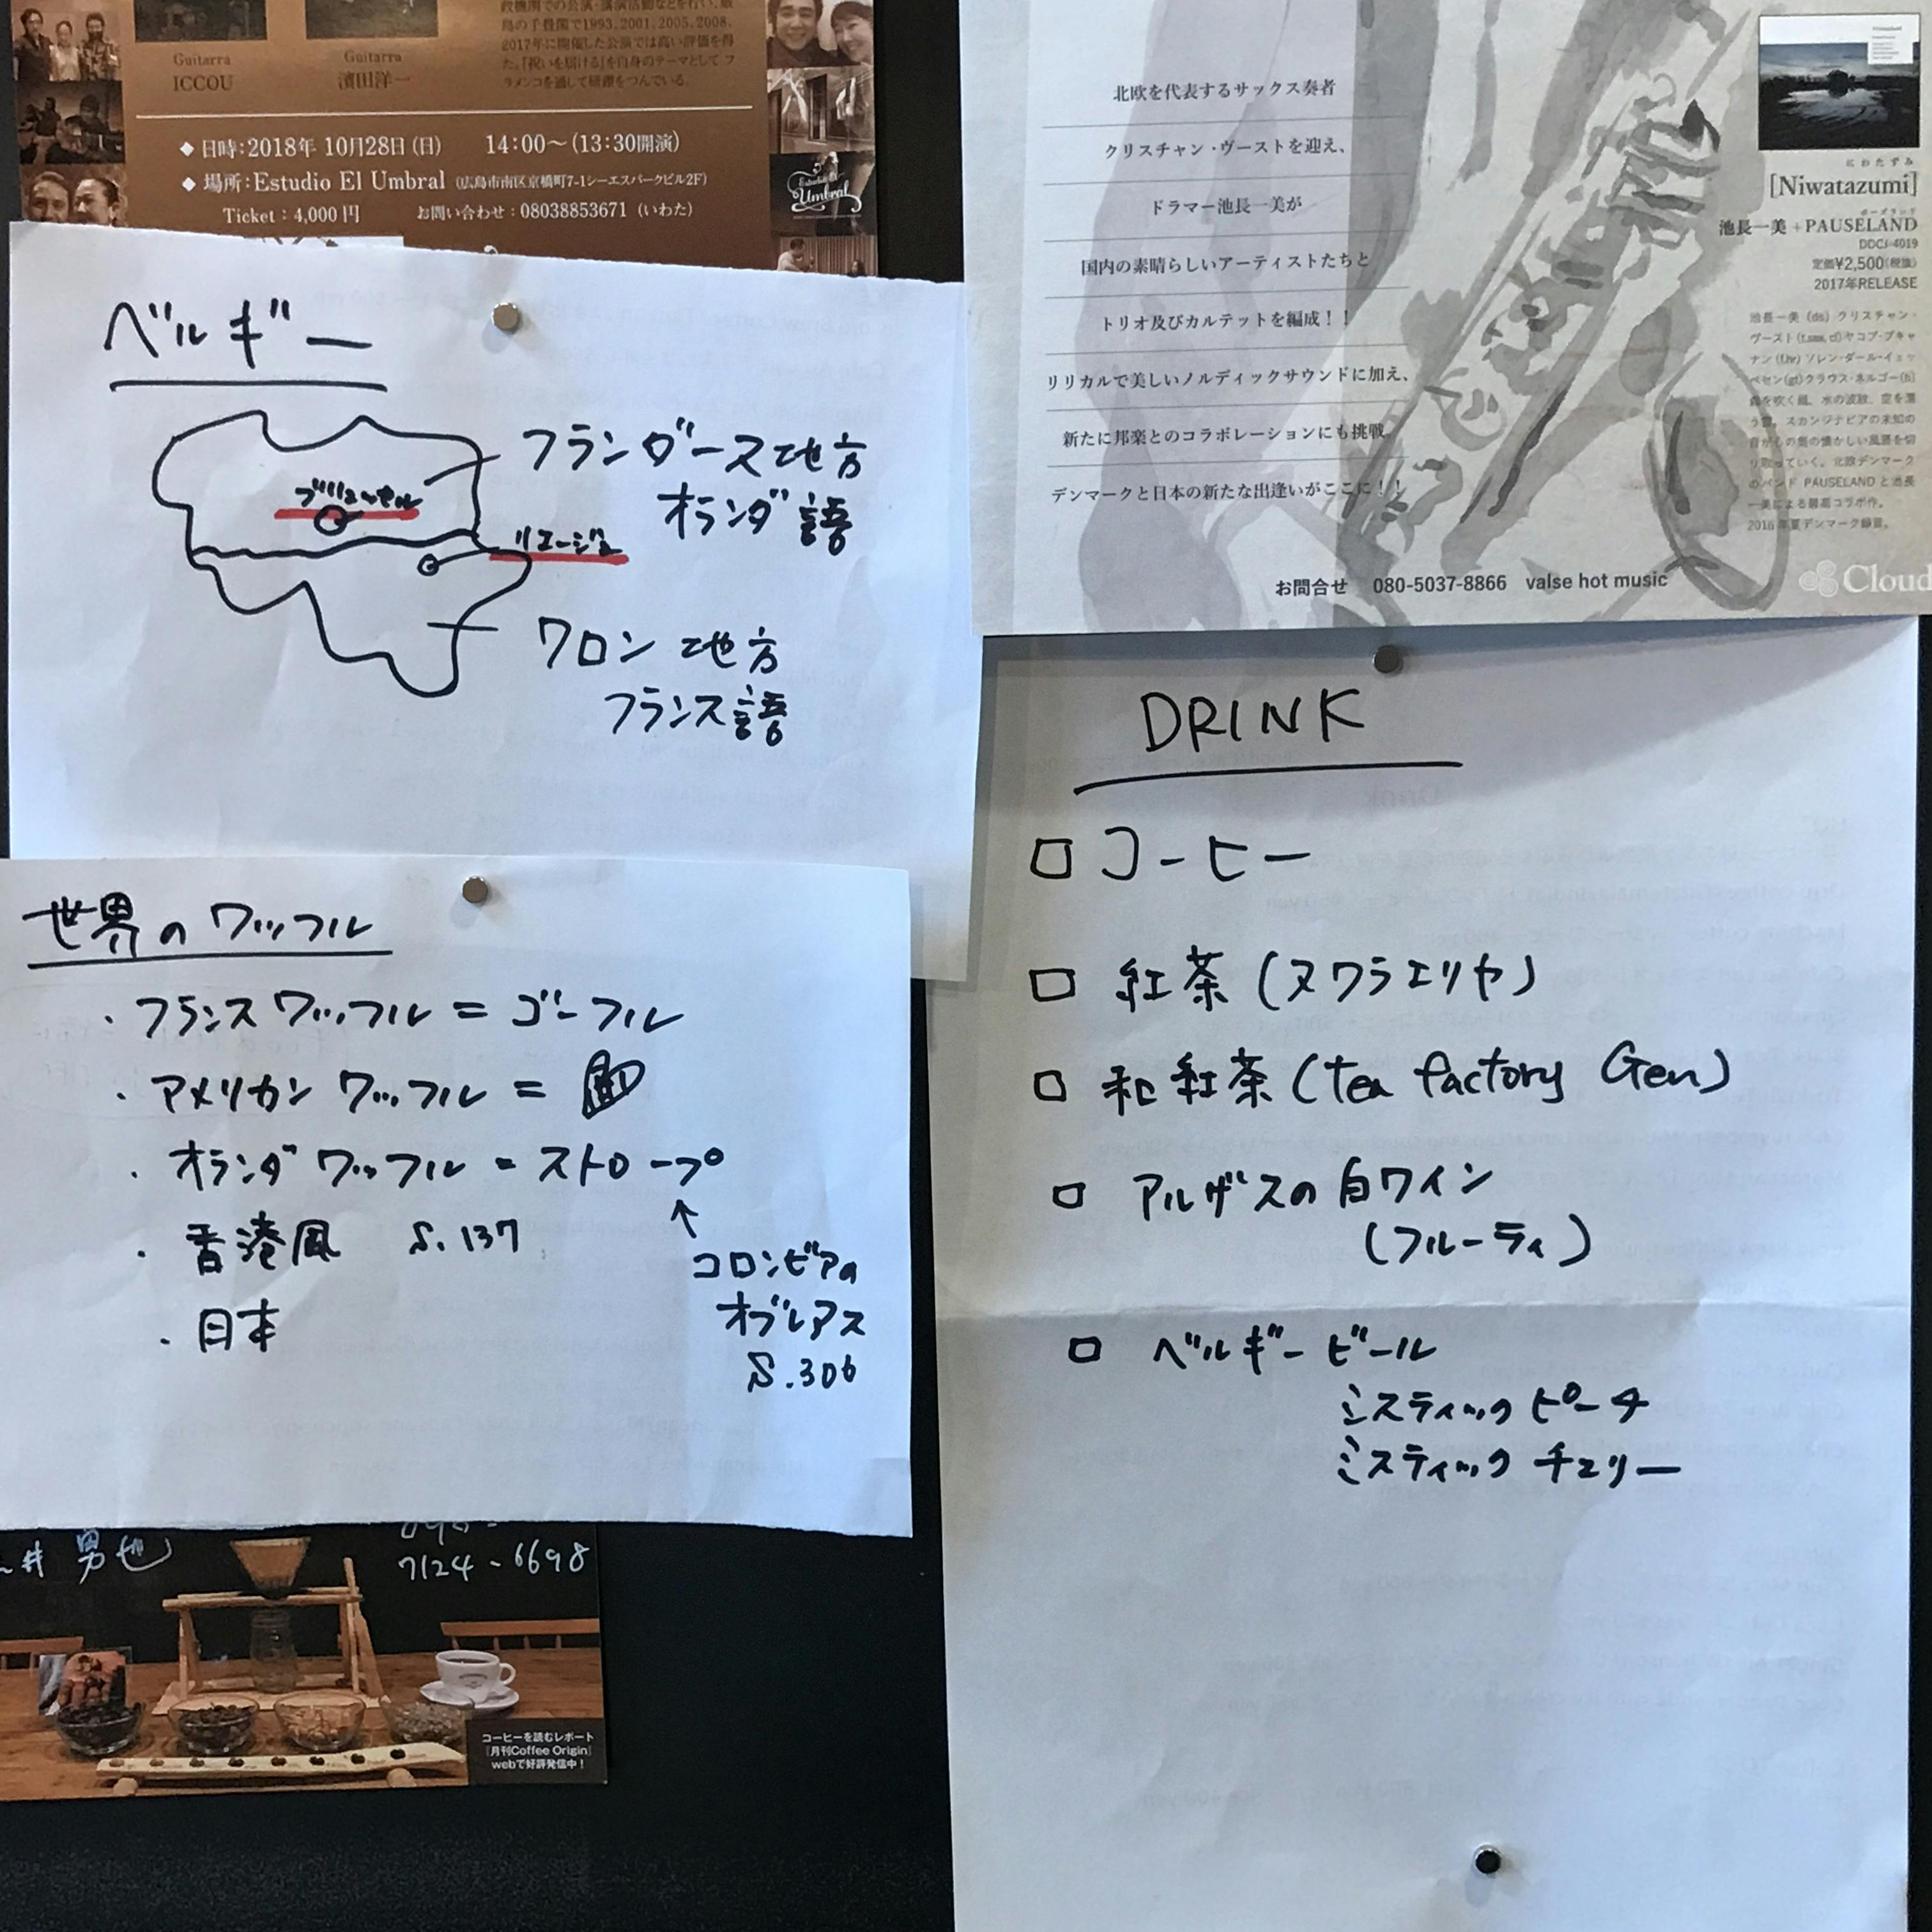 Guitarra
ICCOU
Guitarra
濱田洋一
島の千畳閣で1993、2001、2005、2008、
2017年に開催した公演では高い評価を得
た。「祝いを届ける」を自身のテーマとして フ
ラメンコを通して研鑽をつんでいる。
◆ 日時：2018年 10月28日（日） 14:00〜（13:30開演）
◆ 場所：Estudio El Umbral（広島市南区京橋町7-1シーエスパークビル2F）
Ticket：4,000円 お問い合わせ：08038853671（いわた）
Umbral
北欧を代表するサックス奏者
クリスチャン・ヴーストを迎え、
ドラマー池長一美が
国内の素晴らしいアーティストたちと
トリオ及びカルテットを編成！！
リリカルで美しいノルディックサウンドに加え、
新たに邦楽とのコラボレーションにも挑戦。
デンマークと日本の新たな出逢いがここに！！
お問合せ 080-5037-8866 valse hot music
にわたずみ
[Niwatazumi]
ポーズランド
池長一美 + PAUSELAND
DDCJ-4019
定価¥2,500(税抜)
2017年RELEASE
池長一美 (ds) クリスチャン・
ヴースト
のバンド PAUSELANDと池長
一美による最高コラボ作。
2016年夏デンマーク録音。
Cloud
ベルギー
フランダース地方
オランダ語
ブリュッセル
リエージュ
ワロン地方
フランス語
世界のワッフル
・フランスワッフル = ゴーフル
・アメリカンワッフル =
・オランダワッフル = ストロープ
↑
・香港風 S.137
コロンビアの
オブレアス
S.306
・日本
DRINK
□ コーヒー
□ 紅茶 (ヌワラエリヤ)
□ 和紅茶 (tea factory Gen)
□ アルザスの白ワイン
(フルーティ)
□ ベルギービール
ミスティックピーチ
ミスティックチェリー
井 男也
7124-6698
コーヒーを読むレポート
「月刊Coffee Origin」
webで好評発信中！